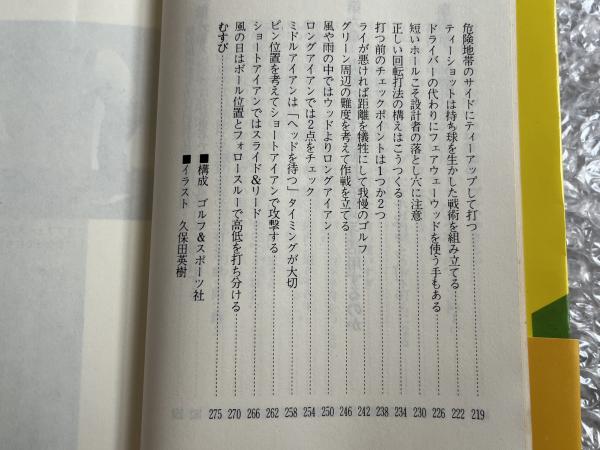 危険地帯のサイドにティーアップして打つ……219
ティーショットは持ち球を生かした戦術を組み立てる……222
ドライバーの代わりにフェアウェーウッドを使う手もある……226
短いホールこそ設計者の落とし穴に注意……230
正しい回転打法の構えはこうつくる……234
打つ前のチェックポイントは1つか2つ……238
ライが悪ければ距離を犠牲にして我慢のゴルフ……242
グリーン周辺の難度を考えて作戦を立てる……246
風や雨の中ではウッドよりロングアイアン……250
ロングアイアンでは2点をチェック……254
ミドルアイアンは「ヘッドを待つ」タイミングが大切……258
ピン位置を考えてショートアイアンで攻撃する……262
ショートアイアンではスライド&リード……266
風の日はボール位置とフォロースルーで高低を打ち分ける……270
むすび……275
■構成 ゴルフ&スポーツ社
■イラスト 久保田英樹